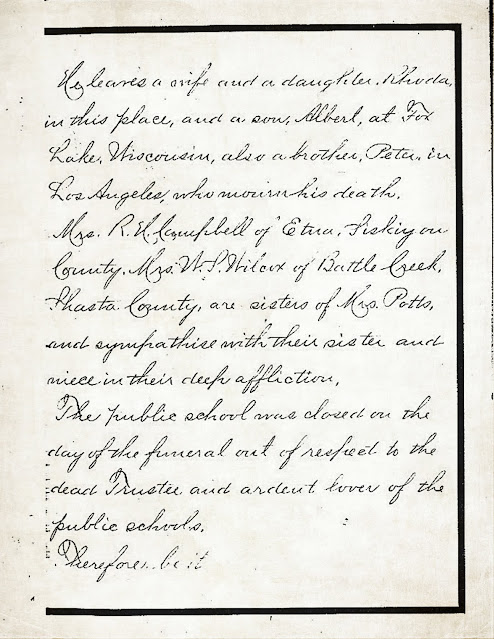 He leaves a wife and a daughter, Rhoda,
in this place, and a son, Albert, at Fox
Lake, Wisconsin, also a brother, Peter, in
Los Angeles, who mourn his death.
Mrs. R. H. Campbell of Etna, Siskiyou
County, Mrs. W. S. Wilcox of Battle Creek,
Shasta County, are sisters of Mrs. Potts,
and sympathise with their sister and
niece in their deep affliction.
The public school was closed on the
day of the funeral out of respect to the
dead Trustee and ardent lover of the
public schools.
Therefore, be it